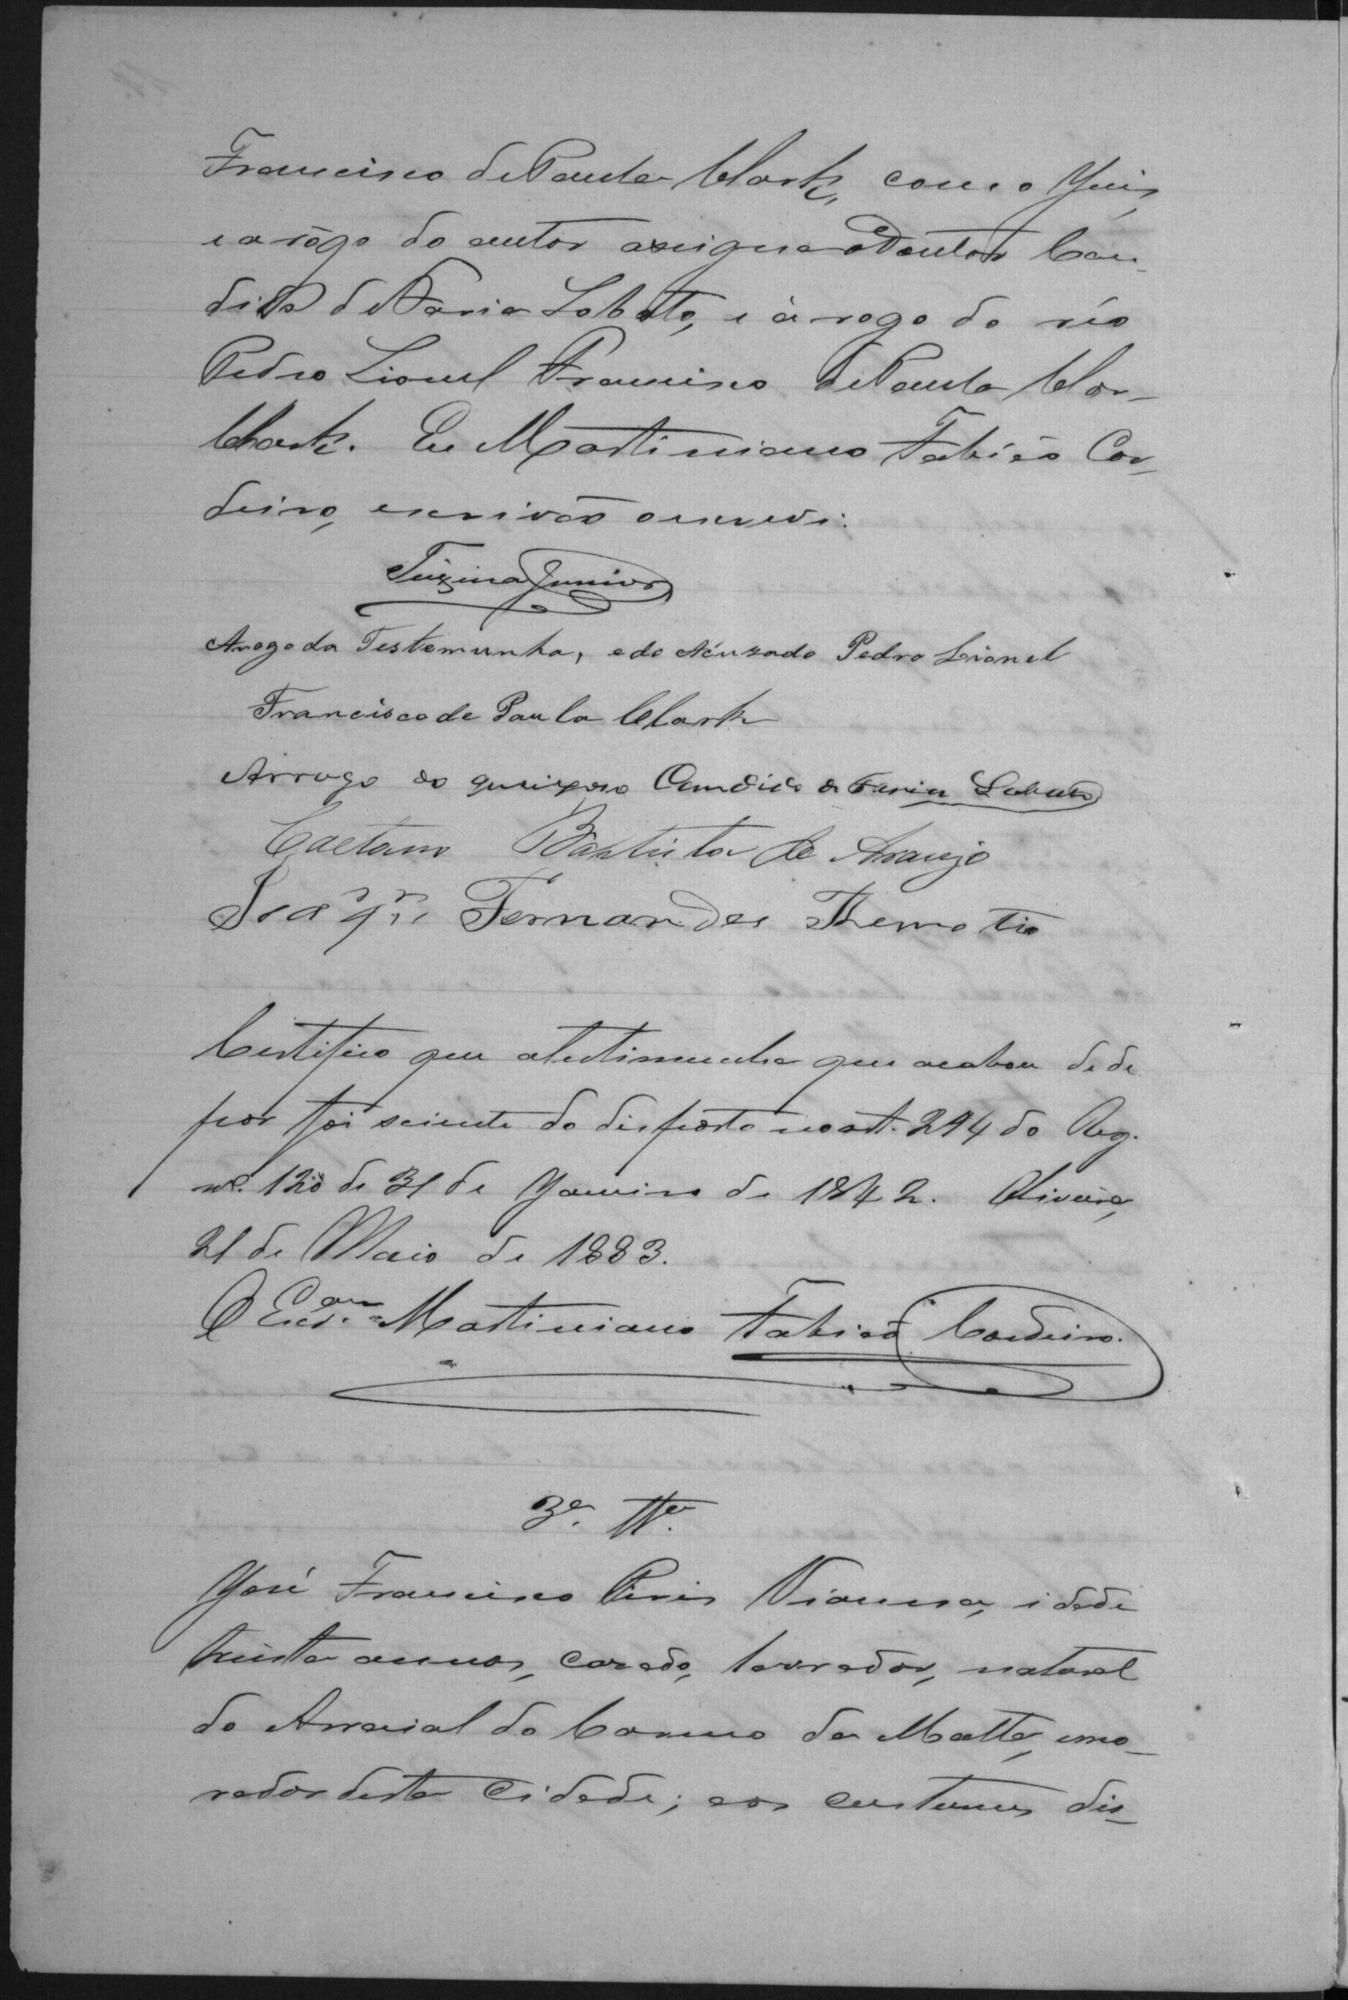 Francisco de Paula Clark, com o Juis,
e a rôgo do autor assigna o Doutor Can-
dido de Faria Lobato, e à rogo do réo
Pedro Lionel Francisco de Paula Clar-
Clark. Eu Martiniano Fabião Cor-
deiro, escrivão o escrevi.
Junior
Arogo da Testemunha, e do Acuzado Pedro Leionel
Francisco de Paula Clark
Arrogo do queixozo Candido de Faria Lobato
Caetano Baptista de Araujo
Joaqm. Fernandes Themotio
Certifico que atestimunha que acabou de de
por foi sciente do disposto no art. 294 do Reg.
nº. 120 de 31 de Janeiro de 1842. Oliveira,
21 de Maio de 1883.
O Escam. Martiniano Fabião Cordeiro.
3ª. Tta.
José Francisco Pires Vianna, idade
trinta annos, casado, lavrador, natural
do Arraial do Carmo da Matta, mo-
rador desta Cidade; aos custumes dis-